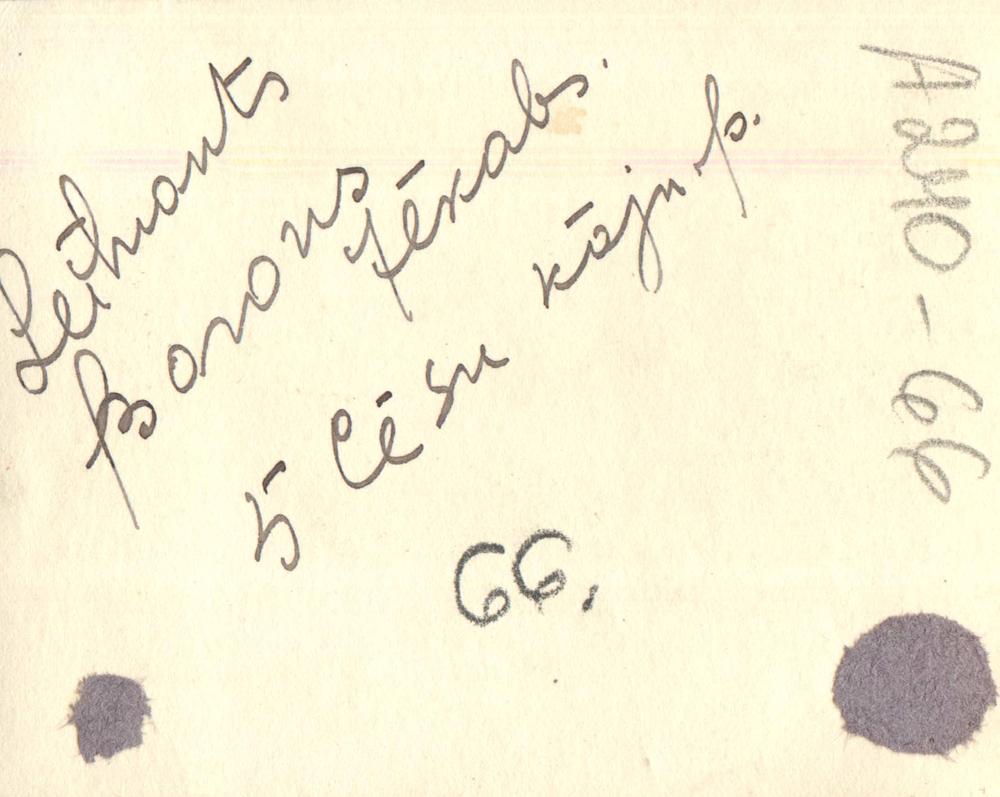 Leitnants
Barons
Jēkabs.
5 Cēsu kājn. p.
66.
A240-66